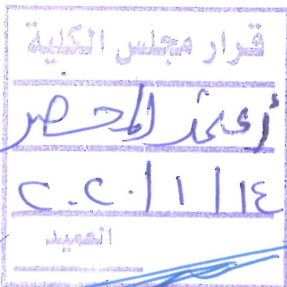 قرار مجلس الكلية
أعتمد المحضر
٢٠٢٠/١/١٤
العميد